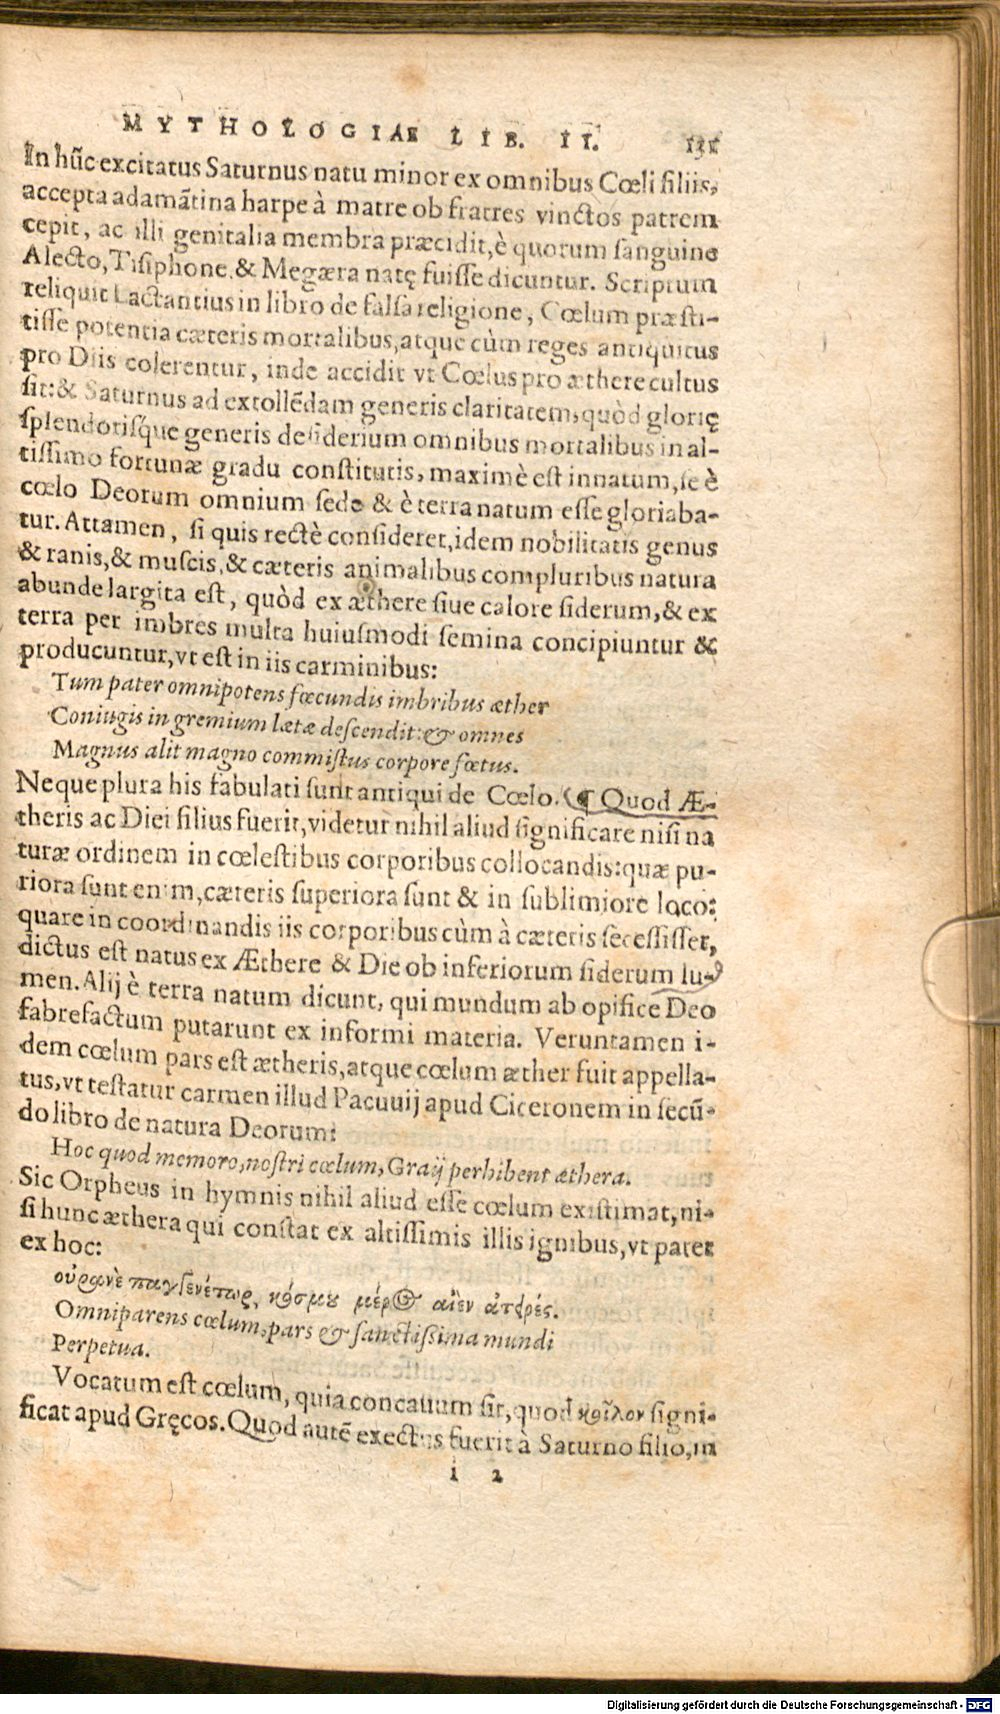 MYTHOLOGIAE LIB. II. 131
In hūc excitatus Saturnus natu minor ex omnibus Cœli filiis,
accepta adamātina harpe à matre ob fratres vinctos patrem
cepit, ac illi genitalia membra præcidit, è quorum sanguine
Alecto, Tisiphone, & Megæra natę fuisse dicuntur. Scriptum
reliquit Lactantius in libro de falsa religione, Cœlum præsti-
tisse potentia cæteris mortalibus, atque cùm reges antiquitus
pro Diis colerentur, inde accidit vt Cœlus pro æthere cultus
sit: & Saturnus ad extollēdam generis claritatem, quòd glorię
splendorisq́ue generis desiderium omnibus mortalibus in al-
tissimo fortunæ gradu constitutis, maximè est innatum, se è
cœlo Deorum omnium sede & è terra natum esse gloriaba-
tur. Attamen, si quis rectè consideret, idem nobilitatis genus
& ranis, & muscis, & cæteris animalibus compluribus natura
abunde largita est, quòd ex æthere siue calore siderum, & ex
terra per imbres multa huiusmodi semina concipiuntur &
producuntur, vt est in iis carminibus:
Tum pater omnipotens fœcundis imbribus æther
Coniugis in gremium lætæ descendit: & omnes
Magnus alit magno commistus corpore fœtus.
Neque plura his fabulati sunt antiqui de Cœlo. (¶ Quod Æ-
theris ac Diei filius fuerit, videtur nihil aliud significare nisi na
turæ ordinem in cœlestibus corporibus collocandis: quæ pu-
riora sunt enim, cæteris superiora sunt & in sublimiore loco:
quare in coordinandis iis corporibus cùm à cæteris secessisset,
dictus est natus ex Æthere & Die ob inferiorum siderum lu-
men. Alij è terra natum dicunt, qui mundum ab opifice Deo
fabrefactum putarunt ex informi materia. Veruntamen i-
dem cœlum pars est ætheris, atque cœlum æther fuit appella-
tus, vt testatur carmen illud Pacuuij apud Ciceronem in secū-
do libro de natura Deorum:
Hoc quod memoro, nostri cœlum, Graij perhibent æthera.
Sic Orpheus in hymnis nihil aliud esse cœlum existimat, ni-
si hunc æthera qui constat ex altissimis illis ignibus, vt patet
ex hoc:
οὐρανὲ παγγενέτωρ, κόσμου μέρος αἰὲν ἀτειρές.
Omniparens cœlum, pars & sanctissima mundi
Perpetua.
Vocatum est cœlum, quia concauum sit, quod κοῖλον signi-
ficat apud Gręcos. Quod autē exectus fuerit à Saturno filio, in
i 2
Digitalisierung gefördert durch die Deutsche Forschungsgemeinschaft - DFG